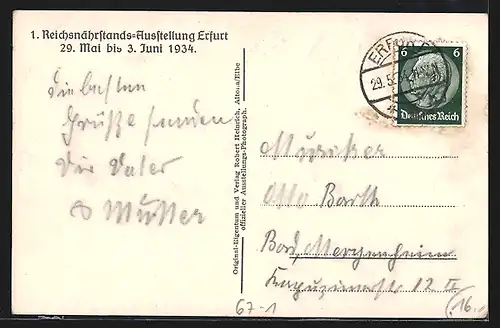 1. Reichsnährstands-Ausstellung Erfurt
29. Mai bis 3. Juni 1934.
Die besten
Grüße senden
Dir Vater
& Mutter
Original-Eigentum und Verlag Robert Heinrich, Altona/Elbe
offizieller Ausstellungs-Photograph.
ERFURT
29.5.
6 6
Deutsches Reich
Musiker
Otto Barth
Bad Mergentheim
Kapuzinerstr 12 II
67-1
16.